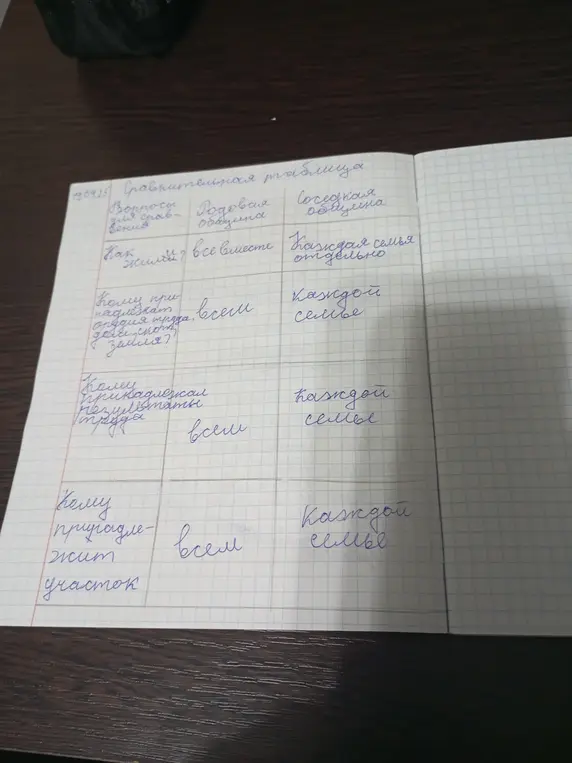 Сравнительная таблица
Вопросы
для срав-
нения
Родовая
община
Соседская
община
Как
жили?
все вместе
Каждая семья
отдельно
Кому при-
надлежат
орудия труда,
дом, скот
земля?
всем
Каждой
семье
Кому
принадлежал
результаты
труда
всем
Каждой
семье
Кому
принадле-
жит
участок
всем
Каждой
семье